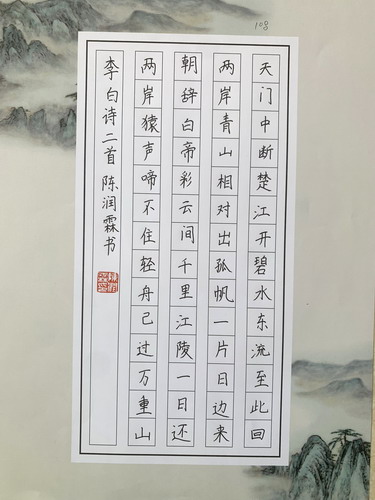 108
天门中断楚江开碧水东流至此回
两岸青山相对出孤帆一片日边来
朝辞白帝彩云间千里江陵一日还
两岸猿声啼不住轻舟已过万重山
李白诗二首 陈润霖书